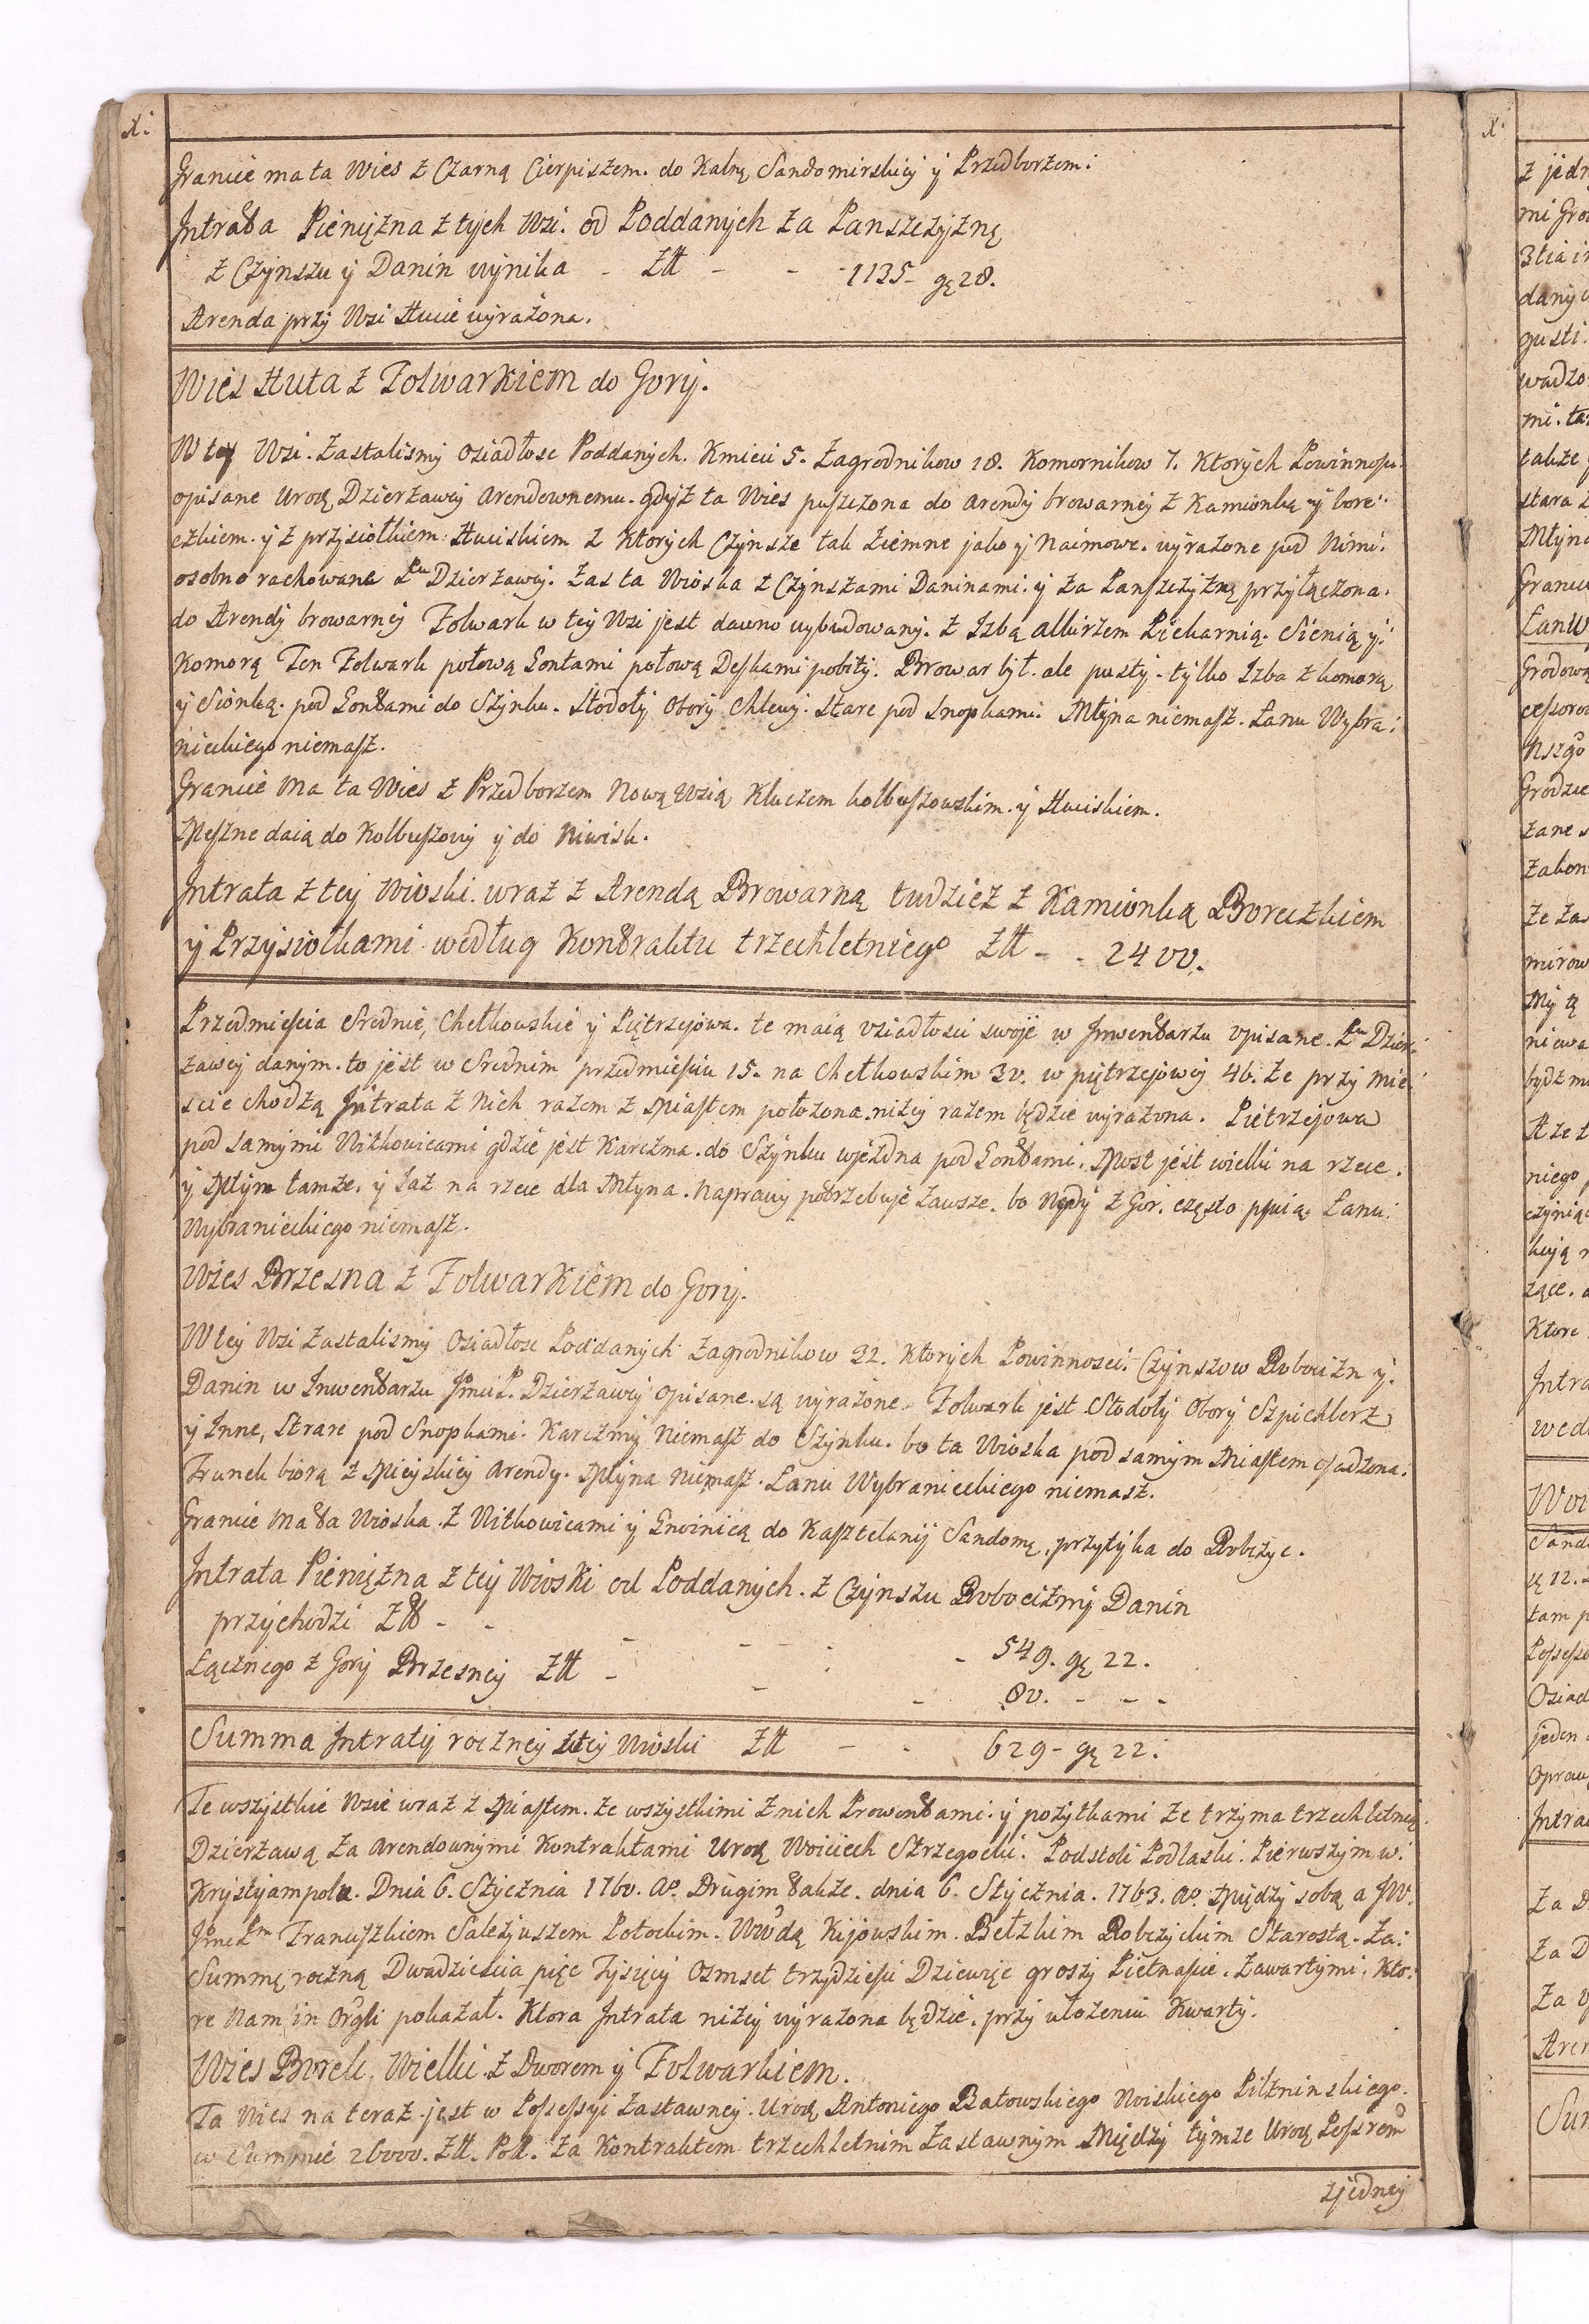 X:
Granice ma ta Wies z Czarną Cierpiszem. do Kalnę Sandomirskiey y Przedborzem:
Intrata Pieniężna z tych Wsi. od Poddanych za Panszczyznę
z Czynszu y Danin wynika - Złł - - - 1135 - gę 28.
Arenda przy Wsi Hucie wyrażona.
Wies Huta z Folwarkiem do Gory.
W tey Wsi. Zastalismy Osiadłosc Poddanych. Kmieci 5. Zagrodnikow 18. Komornikow 7. Ktorych Powinnosci
opisane Urodę Dzierżawcy Arendownemu. gdyż ta Wies puszczona do Arendy browarney z Kamionką y bore:
czkiem. y z przysiołkiem Huciskiem z Ktorych Czynsze tak Ziemne jako y Naimowe. wyrażone pod Nimi.
osobno rachowane Pu Dzierżawcy. Zas ta Wioska z Czynszami Daninami. y za Panszczyzną przyłączona.
do Arendy browarney Folwark w tey Wsi jest dawno wybudowany. z Izbą alkirzem Piekarnią. Sienią y:
Komorą Ten Folwark połową Gontami połową Deskami pobity. Browar był. ale pusty. tylko Izba z komorą
y Sionką. pod Gontami do Szynku. Stodoły Obory Chlewy. Stare pod Snopkami. Młyna niemasz. Łanu Wybra:
nieckiego niemasz.
Granice Ma ta Wies z Przedborzem Nową Wsią Kluczem kolbuszowskim. y Huciskiem.
Meszne daią do Kolbuszowy y do Niwisk.
Intrata z tey Wioski. wraz z Arendą Browarną tudziez z Kamionką Boreczkiem
y Przysiołkami według Kontraktu trzechletniego Złł - - 2400.
Przedmiescia Srednie, Chełkowskie y Piętrzejowa. te maią osiadłosci swoje w Inwentarzu opisane. Pu Dzier:
żawcy danym. to jest w Srednim przedmiesciu 15. na Chełkowskim 30. w piętrzejowey 46. Ze przy mie:
scie chodzą Intrata z nich razem z Miastem położona niżey razem będzie wyrażona. Pietrzejowa
pod samymi Witkowicami gdzie jest Karczma. do Szynku wjezdna pod Gontami. Most jest wielki na rzece.
y Młyn tamze. y Jaz na rzece dla Młyna. Naprawy potrzebuje zawsze. bo Wody z Gor. często psuią. Łanu
Wybranieckiego niemasz.
Wies Brzesna z Folwarkiem do Gory.
W tey Wsi Zastalismy Osiadłosc Poddanych Zagrodnikow 32. Ktorych Powinnosci. Czynszow Robocizn y.
Danin w Inwentarzu JmciP. Dzierżawcy opisane. są wyrażone. Folwark jest Stodoły Obory Szpichlerz
y Inne, Strare pod Snopkami. Karczmy Niemasz do Szynku. bo ta Wioska pod samym Miastem osadzona.
Trunek biorą z Mieyskiey Arendy. Młyna Niemasz. Łanu Wybranieckiego niemasz.
Granice Ma ta Wioska. z Witkowicami y Gnoinicą do Kasztelanij Sandomę. przytyka do Robczyc.
Intrata Pieniężna z tey Wioski od Poddanych. z Czynszu Robocizny Danin
przychodzi Złt - - - - - - - 549. gę 22.
Łącznego z Gory Brzesney Złł - - - 80. - - -
Summa Intraty roczney z tey Wioski Złł - - 629 - gę 22:
Te wszystkie Wsie wraz z Miastem. ze wszystkimi z nich Prowentami. y pożytkami że trzyma trzechletnią
Dzierżawą za Arendownymi Kontraktami Urodę Woiciech Strzegocki. Podstoli Podlaski. Pierwszym w:
Krystyampolu. Dnia 6. Stycznia 1760. Ao. Drugim także. dnia 6. Stycznia. 1763. Ao. Między sobą a JW.
JmcPm Franciszkiem Salezjuszem Potockim. Wwdą Kijowskim. Bełzkim Robczyckim Starostą. Za:
Summę roczną Dwadziescia pięc Tysięcy Osmset trzydziesci Dziewięc groszy Pietnascie. Zawartymi. Kto:
re Nam in Orgli pokazał. Ktora Intrata niżey wyrażona będzie. przy ułożeniu Kwarty.
Wies Borek Wielki. z Dworem y Folwarkiem.
Ta Wies na teraz. jest w Possessyi Zastawney. Urodę Antoniego Batowskiego Woiskiego Pilzninskiego.
w Summie 26000. Złł. Poll. Za Kontraktem trzechletnim Zastawnym Między tymze Urodę Possrem
z jedney
X: